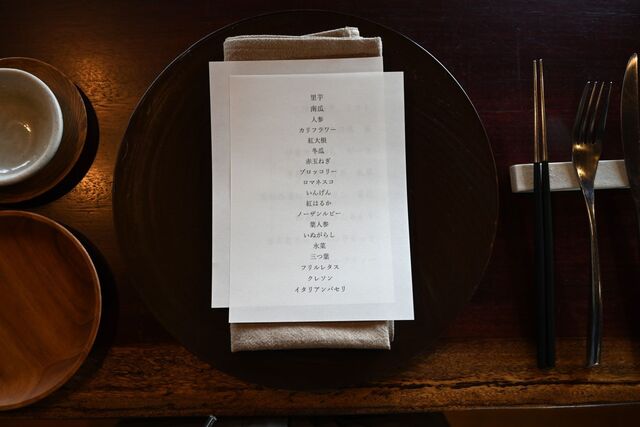 里芋
南瓜
人参
カリフラワー
紅大根
冬瓜
赤玉ねぎ
ブロッコリー
ロマネスコ
いんげん
紅はるか
ノーザンルビー
葉人参
いぬがらし
水菜
三つ葉
フリルレタス
クレソン
イタリアンパセリ